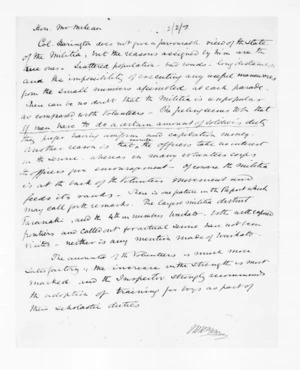 Hon. Mr McLean
Col. Harington does not give a favourable view of the state
of the Militia, but the reasons assigned by him are the
true ones. Scattered population - bad roads - long distances
and the impossibility of executing any useful manoeuvres
from the small numbers assembled at each parade.
There can be no doubt that the Militia is unpopular
as compared with Volunteers. The feeling seems to be that
if men have to do a certain amount of Soldiers duty
they prefer having uniform and capitation money.
Another reason is that the officers take no interest
in the service. whereas in many Volunteer Corps
the officers give encouragement. Of course the Militia
is at the back of the Volunteer movement and
feeds its ranks. There is one feature in the Report which
may call for remarks. The largest militia district
Taranaki, and the in numbers Wairoa, both with exposed
frontiers and called out for actual service have not been
visited - neither is any mention made of
The account of the Volunteers is much more
satisfactory, the increase in the strength is most
marked and the Inspector strongly recommends
the adoption of training for boys as part of
their scholastic duties